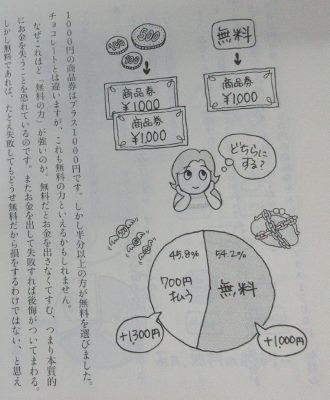 １０００円の商品券はプラス１０００円です。しかし半分以上の方が無料を選びました。
チョコレートとは違いますが、これも無料の力といえるかもしれません。
なぜこれほど「無料の力」が強いのか。無料だとお金を出さなくてすむ、つまり本質的
にお金を失うことを恐れているのです。またお金を出して失敗すれば後悔がついてまわる。
しかし無料であれば、たとえ失敗してもどうせ無料だから損をするわけではない、と思え
100
500
100
無料
商品券
¥1,000
商品券
¥1,000
商品券
¥1,000
どちらに
する?
45.8%
700円
払う
54.2%
無料
+1300円
+1000円